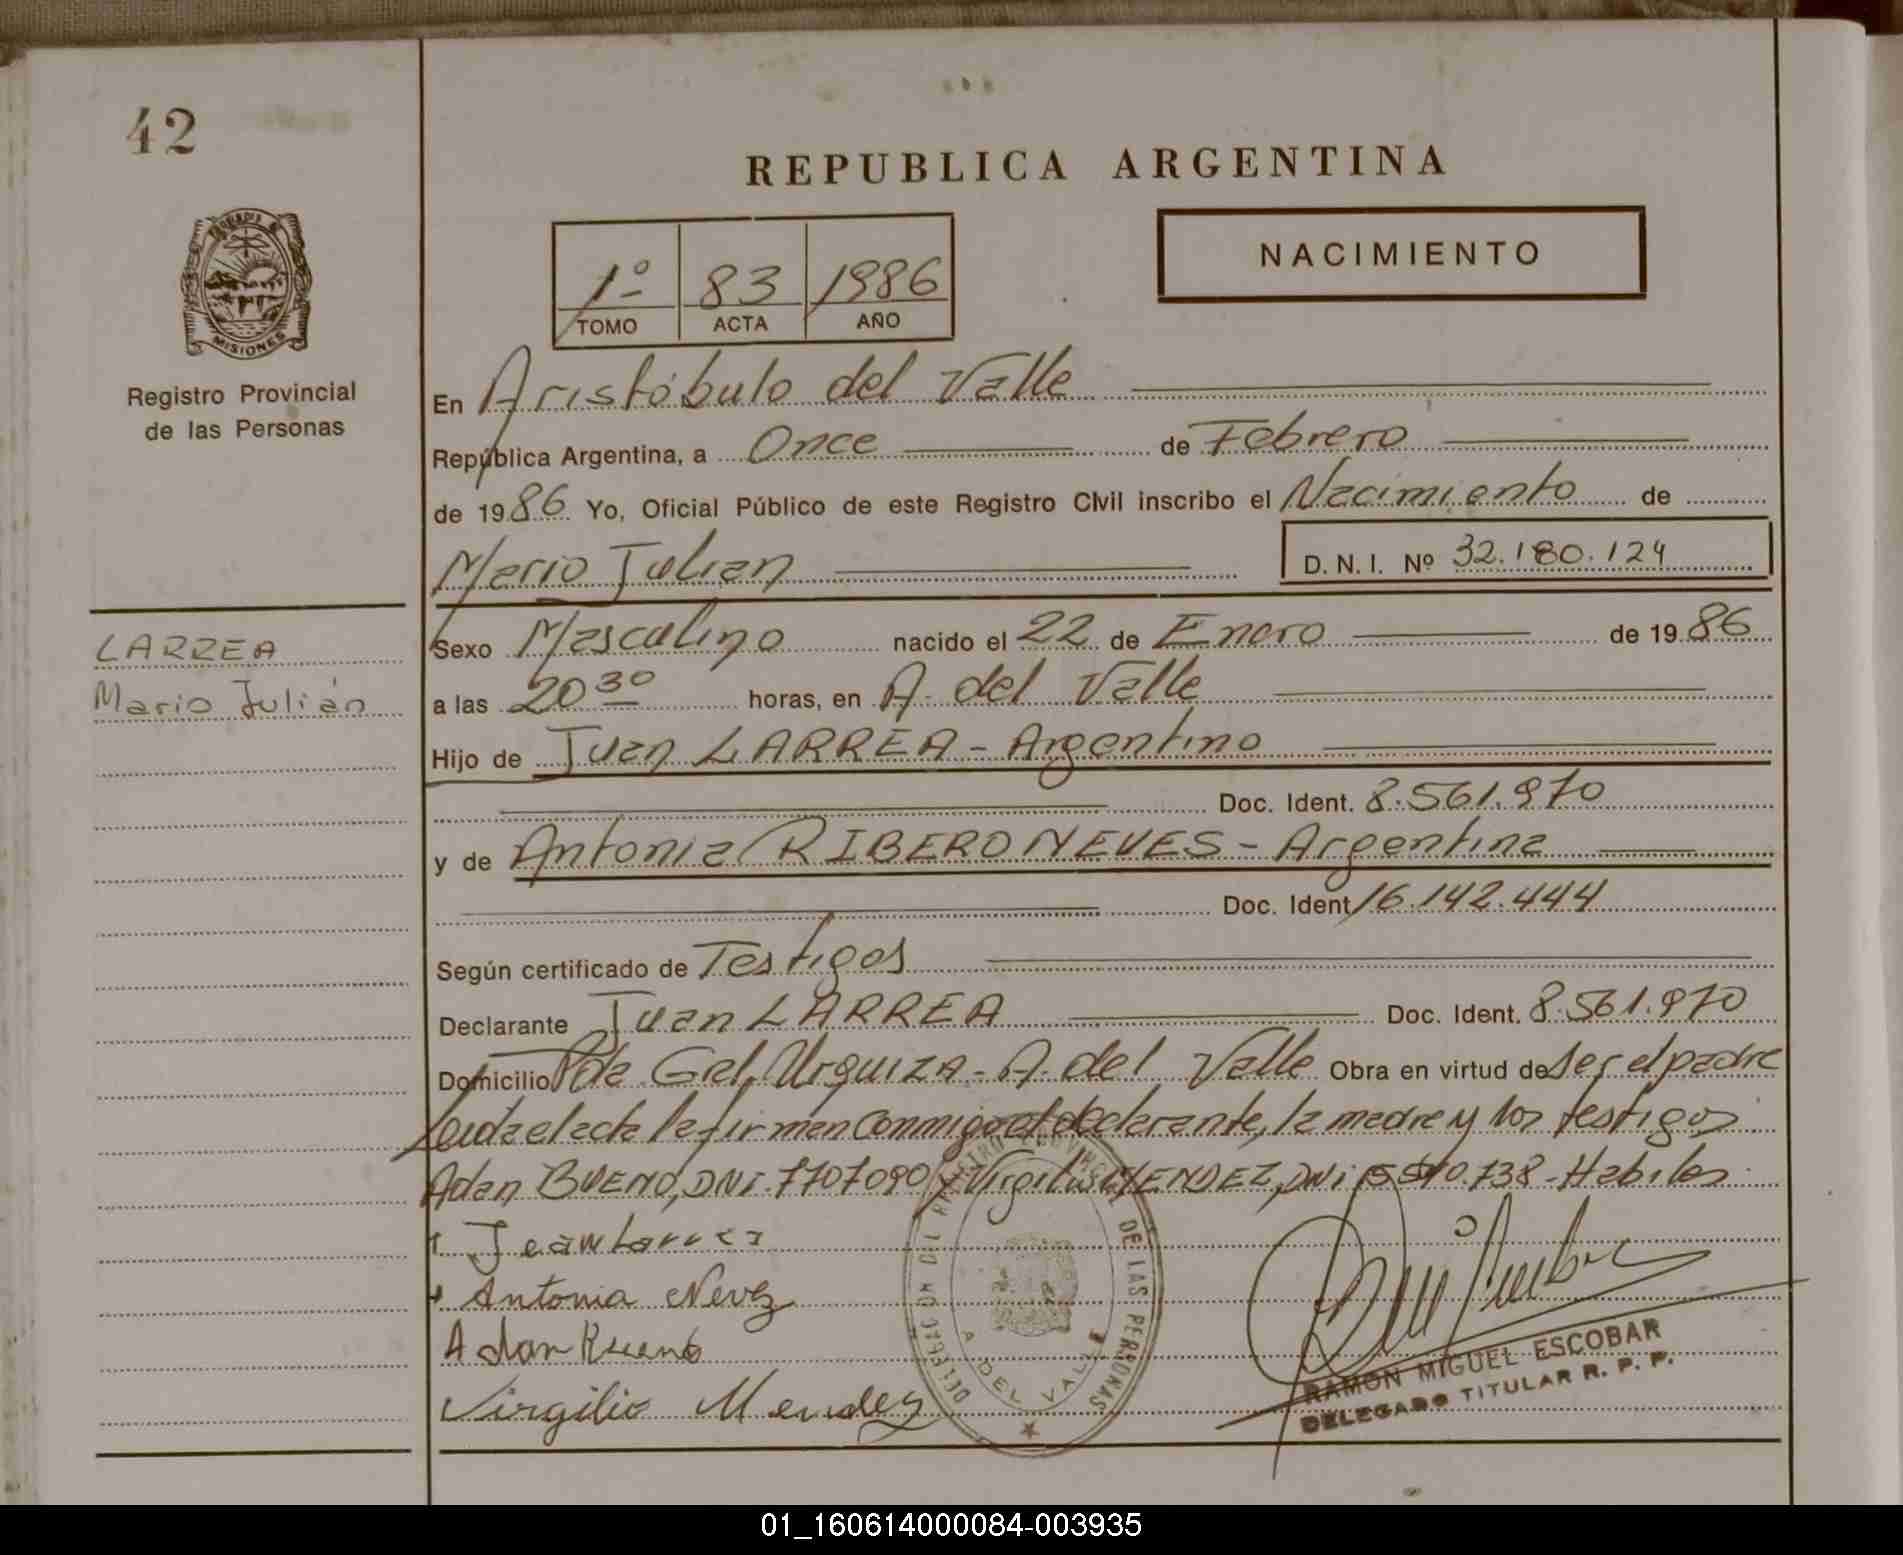 42
REPUBLICA ARGENTINA
NACIMIENTO
1º 83 1986
TOMO ACTA AÑO
MISIONES
Registro Provincial
de las Personas
En Aristóbulo del Valle
República Argentina, a Once de Febrero
de 1986 Yo, Oficial Público de este Registro Civil inscribo el Nacimiento de
Mario Julian D. N. I. Nº 32.180.124
LARREA
Mario Julián
Sexo Masculino nacido el 22 de Enero de 1986
a las 20 30 horas, en A. del Valle
Hijo de Juan LARREA - Argentino
Doc. Ident. 8.561.970
y de Antonia RIBERO NEVES - Argentina
Doc. Ident. 16.142.444
Según certificado de Testigos
Declarante Juan LARREA Doc. Ident. 8.561.970
Domicilio Pda Gral. Urquiza - A. del Valle Obra en virtud de ser el padre
Leida el acta la firman conmigo el declarante, la madre y los testigos
Adan BUENO, DNI. 7707090 y Virgilio MENDEZ, DNI 738 - Habiles
Juan Larrea
Antonia Nevez
Adan Bueno
Virgilio Mendez
DELEGACION DEL REGISTRO PROVINCIAL DE LAS PERSONAS
A DEL VALLE
RAMON MIGUEL ESCOBAR
DELEGADO TITULAR R. P. P.
01_160614000084-003935